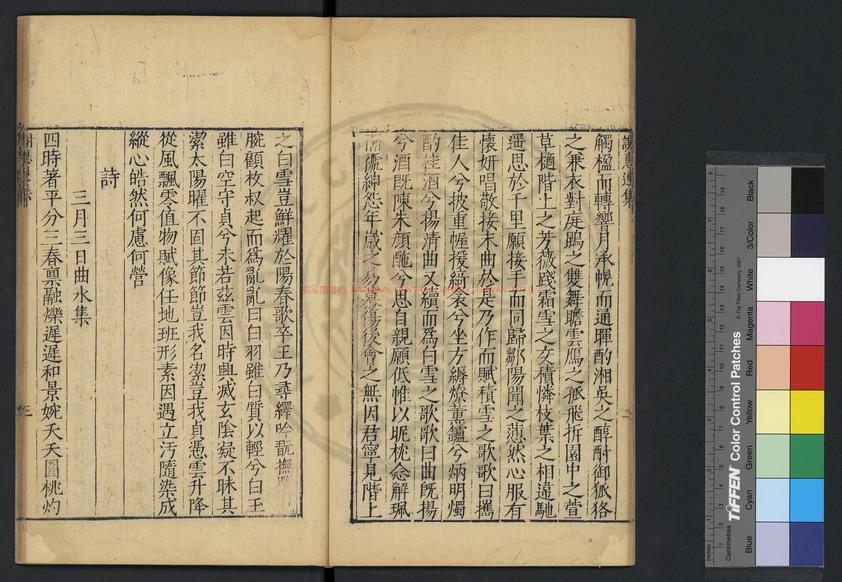 謝惠連集
觸楹而轉響月承幌而通暉酌湘吳之醇酎御狐狢
之兼衣對庭鵾之雙舞瞻雲鴈之孤飛折園中之萱
草樀階上之芳薇踐霜雪之交積憐枝葉之相違馳
遥思於千里願接手而同歸鄒陽聞之懣然心服有
懷妍唱敬接末曲於是乃作而賦積雪之歌歌曰攜
佳人兮披重幄援綺衾兮坐芳縟燎薰鑪兮炳明燭
酌桂酒兮揚清曲又續而爲白雪之歌歌曰曲旣揚
兮酒旣陳朱顔酡兮思自親願低帷以昵枕念解珮
而褫紳怨年歲之易暮傷後會之無因君寧見階上
之白雪豈鮮耀於陽春歌卒王乃尋繹吟翫撫覽
腕顧枚叔起而爲亂亂曰白羽雖白質以輕兮白玉
雖白空守貞兮未若茲雲因時興滅玄陰凝不昧其
潔太陽曜不固其節節豈我名潔豈我貞憑雲升降
從風飄零值物賦像任地班形素因遇立汚隨染成
縱心皓然何慮何營
詩
三月三日曲水集
四時著平分三春禀融爍遲遲和景婉夭夭園桃灼
三
Inches
Centimetres
TIFFEN Color Control Patches
© The Tiffen Company, 2007
Blue
Cyan
Green
Yellow
Red
Magenta
White
3/Color
Black